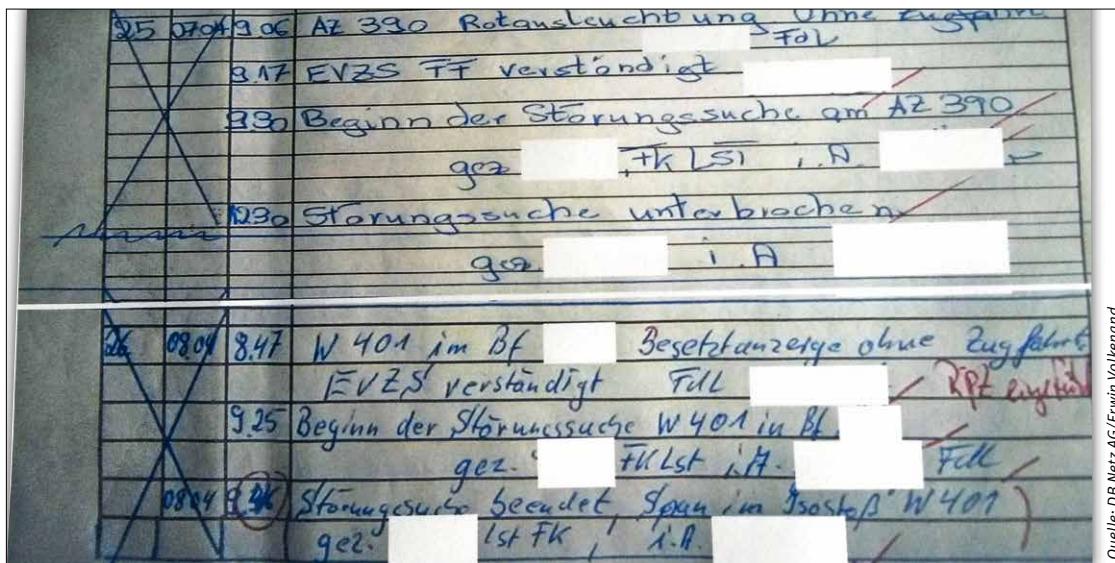 25 07.04 9.06 AZ 390 Rotausleuchtung ohne Zugfahrt
FdL
9.17 EVZS TT verständigt
9.30 Beginn der Störungssuche am AZ 390
gez. FK LST i.A.
12.30 Störungssuche unterbrochen
gez. i.A
26 08.04 8.47 W 401 im Bf Besetztanzeige ohne Zugfahrt
EVZS verständigt FdL
9.25 Beginn der Störungssuche W 401 in Bf
gez. FK Lst i.A. FdL
08.04 Störungssuche beendet, Span im Isostoß W 401
gez. Lst FK, i.A.
Quelle: DB Netz AG/Erwin Volkenand